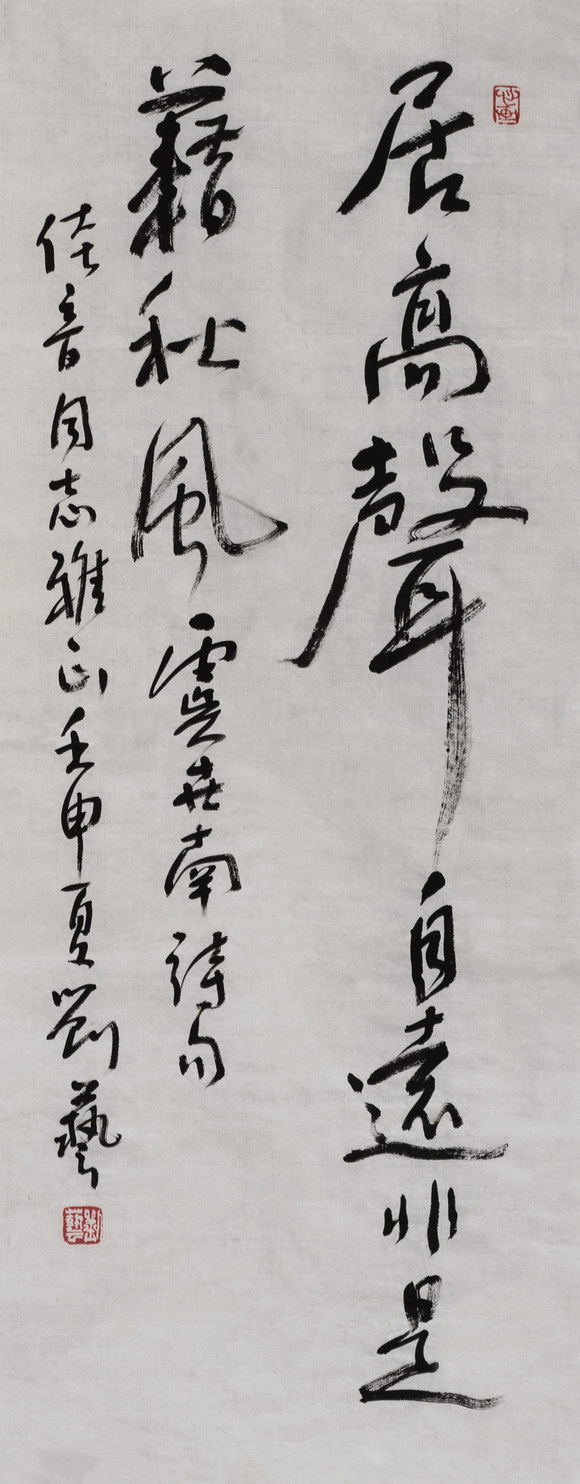 居高聲自遠非是
藉秋風虞世南詩句
佳音同志雅正壬申夏劉藝
劉藝